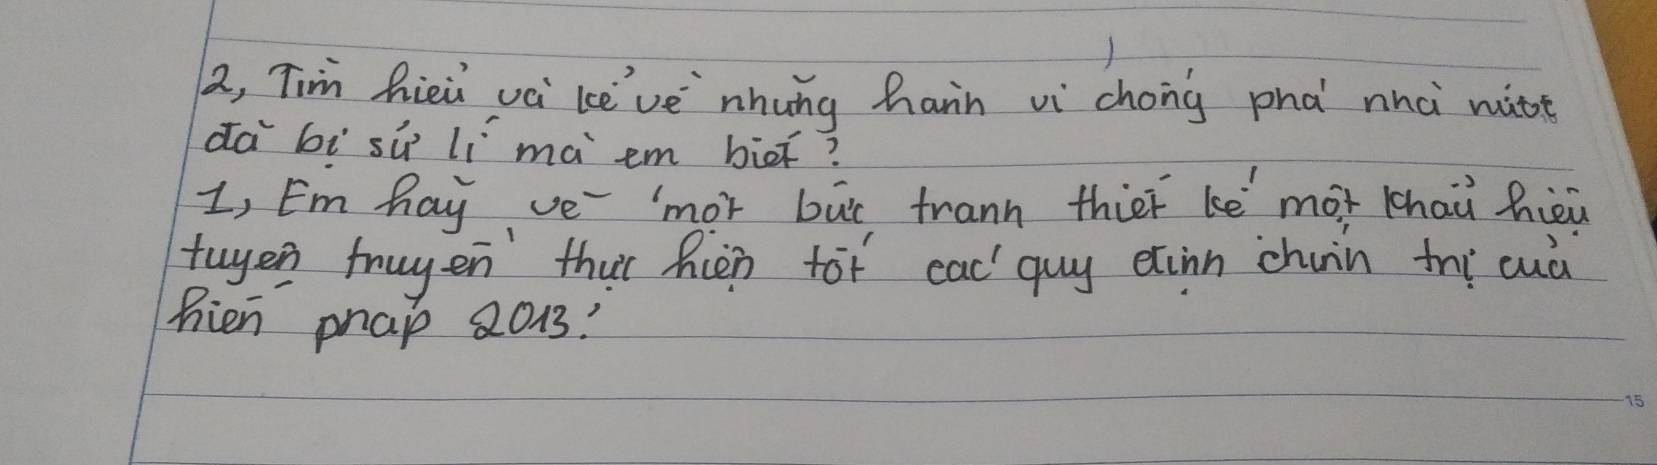 2, Tìm hiểu và kể về những hành vi chống phá nhà nước
đã bị sử lí mà em biết?
1, Em hãy vẽ một bức tranh thiết kế một khẩu hiệu
tuyên truyền thực hiện tốt các quy định chính trị của
hiến pháp 2013?
15